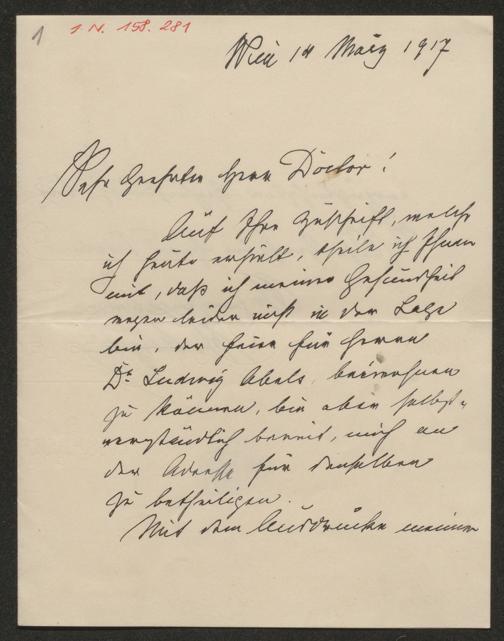 1
I. N. 158.281
Wien 14 März 1917
Sehr geehrter Herr Doctor!
Auf Ihre Zuschrift, welche
ich heute erhielt, theile ich Ihnen
mit, daß ich meiner Gesundheit
wegen leider nicht in der Lage
bin, der Feier für Herrn
Dr. Ludwig Abels, beiwohnen
zu können, bin aber selbst-
verständlich bereit, mich an
der Adresse für denselben
zu betheiligen.
Mit dem Ausdrucke meiner